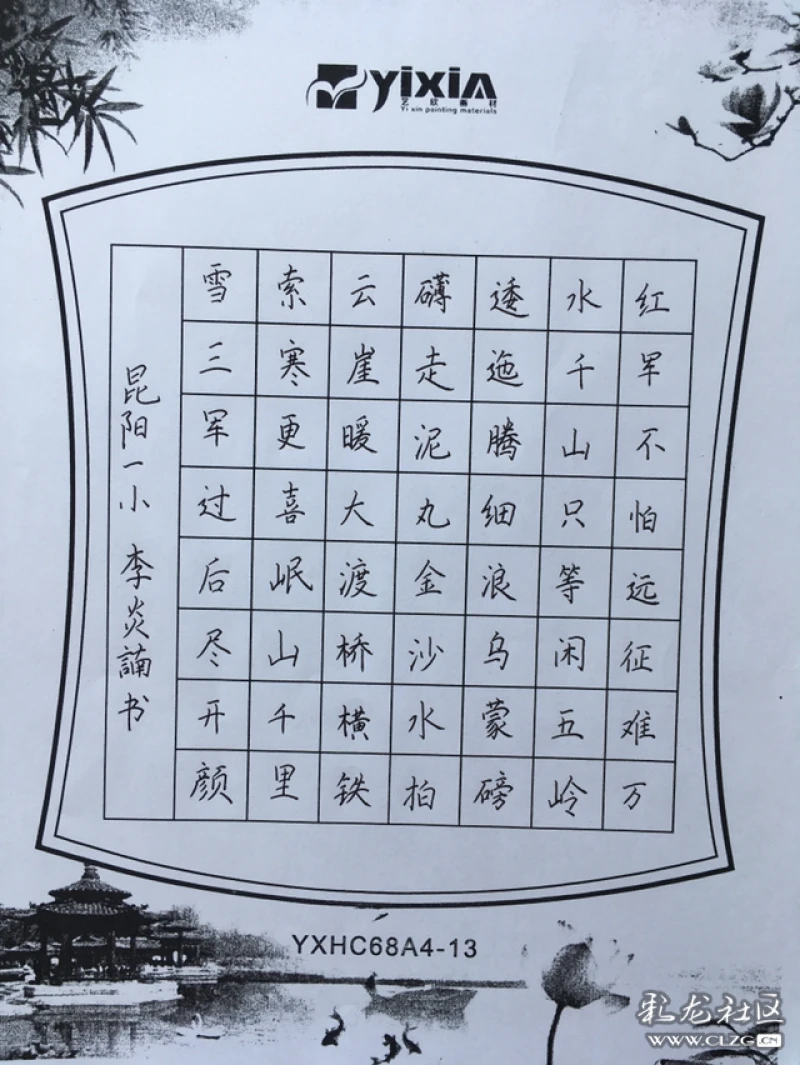 yixin
艺欣畫材
Yi xin painting materials
红军不怕远征难万
水千山只等闲五岭
逶迤腾细浪乌蒙磅
礴走泥丸金沙水拍
云崖暖大渡桥横铁
索寒更喜岷山千里
雪三军过后尽开颜
昆阳一小 李炎諵书
YXHC68A4-13
彩龙社区
www.CLZG.CN